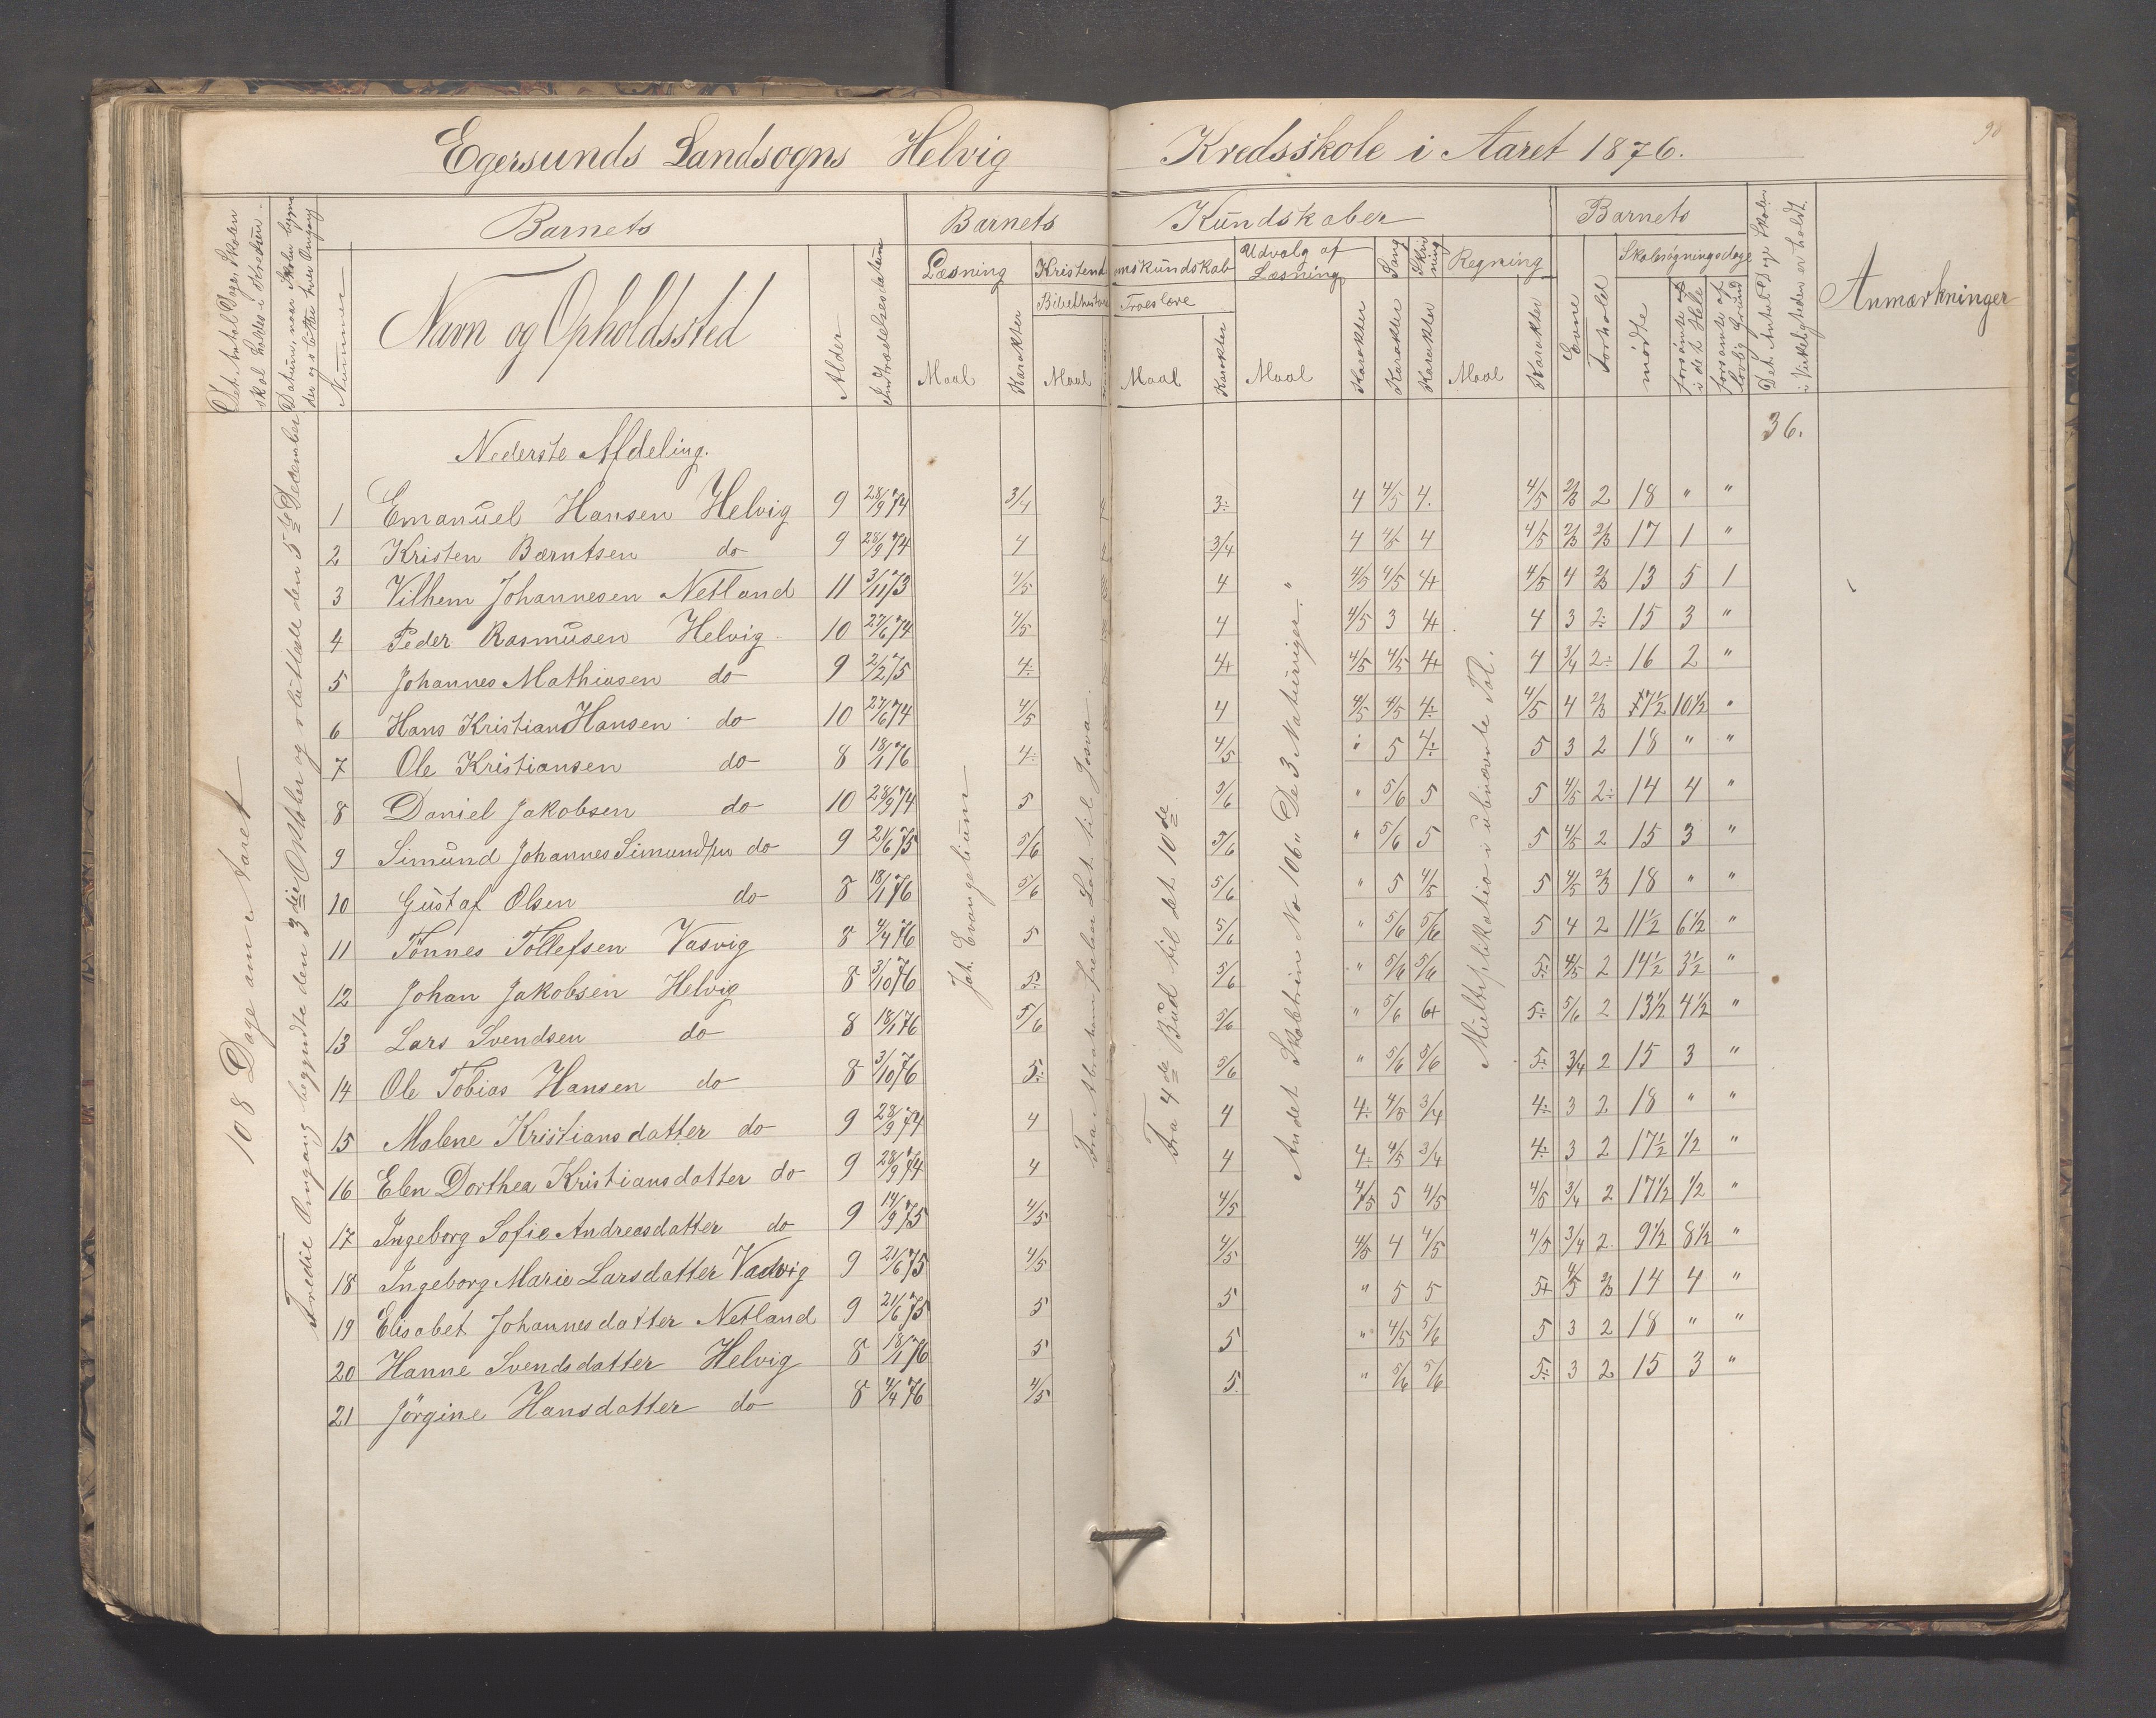 Egersunds Landsogns Helvig Kredsskole i Aaret 1876.
90
Det Antal Dage, Skolen skal holdes i Kredsen.
Datum, naar Skolen begynder og slutter hver Omgang
Nummer
Barnets
Navn og Opholdssted
Alder
Indtrædelsesdatum
Barnets Kundskaber
Læsning
Maal
Karakter
Kristendomskundskab
Bibelhistorie
Maal
Troeslære
Maal
Karakter
Udvalg af Læsning
Maal
Karakter
Sang
Karakter
Skrivning
Karakter
Regning
Maal
Karakter
Barnets
Evne
Forhold
Skolesøgningsdage
mødte
forsømte af i det Hele
forsømte af lovlig Grund
Det Antal Dage Skolen i Virkeligheden er holdt.
Anmærkninger
108 Dage om Aaret
Tredie Omgang begyndte den 3die Oktober og sluttede den 5te December
Nederste Afdeling.
36.
Joh. Evangelium
Fra Abrahams frelser Lot til Josva.
Fra 4de Bud til det 10de
Andet Skoletrin No 106 "De 3 Naturriger."
Multiplikation i ubenævnte Tal.
1 Emanuel Hansen Helvig 9 28/9 74 3/4 3÷ 4 4/5 4. 4/5 2/3 2 18 " "
2 Kristen Bærntsen do 9 28/9 74 4 3/4 4 4/5 4 4/5 2/3 2/3 17 1 "
3 Vilhem Johannesen Netland 11 3/11 73 4/5 4 4/5 4/5 4+ 4/5 4 2/3 13 5 1
4 Peder Rasmusen Helvig 10 27/6 74 4/5 4 4/5 3 4+ 4 3 2÷ 15 3 "
5 Johannes Mathiasen do 9 2/2 75 4÷ 4+ 4/5 4/5 4+ 4 3/4 2÷ 16 2 "
6 Hans Kristian Hansen do 10 27/6 74 4/5 4 4/5 4/5 4÷ 4/5 4 2/3 7 1/2 10 1/2 "
7 Ole Kristiansen do 8 18/1 76 4÷ 4/5 " 5 4÷ 5 3 2 18 " "
8 Daniel Jakobsen do 10 28/9 74 5 5/6 " 5/6 5 5 4/5 2÷ 14 4 "
9 Simund Johannes Simundsen do 9 21/6 75 5/6 5/6 " 5/6 5 5 4/5 2 15 3 "
10 Gustaf Olsen do 8 18/1 76 5/6 5/6 " 5 4/5 5 4/5 2/3 18 " "
11 Tönnes Tollefsen Vasvig 8 4/4 76 5 5/6 " 5/6 5/6 5 4 2 11 1/2 6 1/2 "
12 Johan Jakobsen Helvig 8 3/10 76 5÷ 5/6 " 5/6 5/6 5÷ 4/5 2 14 1/2 3 1/2 "
13 Lars Svendsen do 8 18/1 76 5/6 5/6 " 5/6 6+ 5÷ 5/6 2 13 1/2 4 1/2 "
14 Ole Tobias Hansen do 8 3/10 76 5÷ 5/6 " 5/6 5/6 5÷ 3/4 2 15 3 "
15 Malene Kristiansdatter do 9 28/9 74 4 4 4÷ 4/5 3/4 4÷ 3 2 18 " "
16 Elen Dorthea Kristiansdatter do 9 28/9 74 4 4 4÷ 4/5 3/4 4÷ 3 2 17 1/2 1/2 "
17 Ingeborg Sofie Andreasdatter do 9 14/9 75 4/5 4/5 4/5 5 4/5 4/5 3/4 2 17 1/2 1/2 "
18 Ingeborg Marie Larsdatter Vadvig 9 21/6 75 4/5 4/5 4/5 4 4/5 4/5 3/4 2. 9 1/2 8 1/2 "
19 Elisabet Johannesdatter Netland 9 21/6 75 5 5 " 5 5 5+ 4/5 2/3 14 4 "
20 Hanne Svendsdatter Helvig 8 18/1 76 5 5 " 4/5 5/6 5 3 2 18 " "
21 Jörgine Hansdatter do 8 4/4 76 4/5 5. " 5/6 5/6 5÷ 3 2 15 3 "